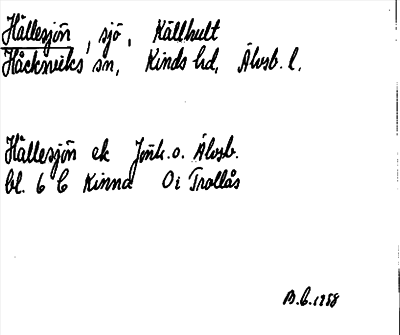 Hällesjön, sjö, Källhult
Håcksviks sn, Kinds hd, Älvsb. l.
Hällesjön ek Jönk. o. Älvsb.
bl. 6 C Kinna 0i Trollås
B.C. 1958